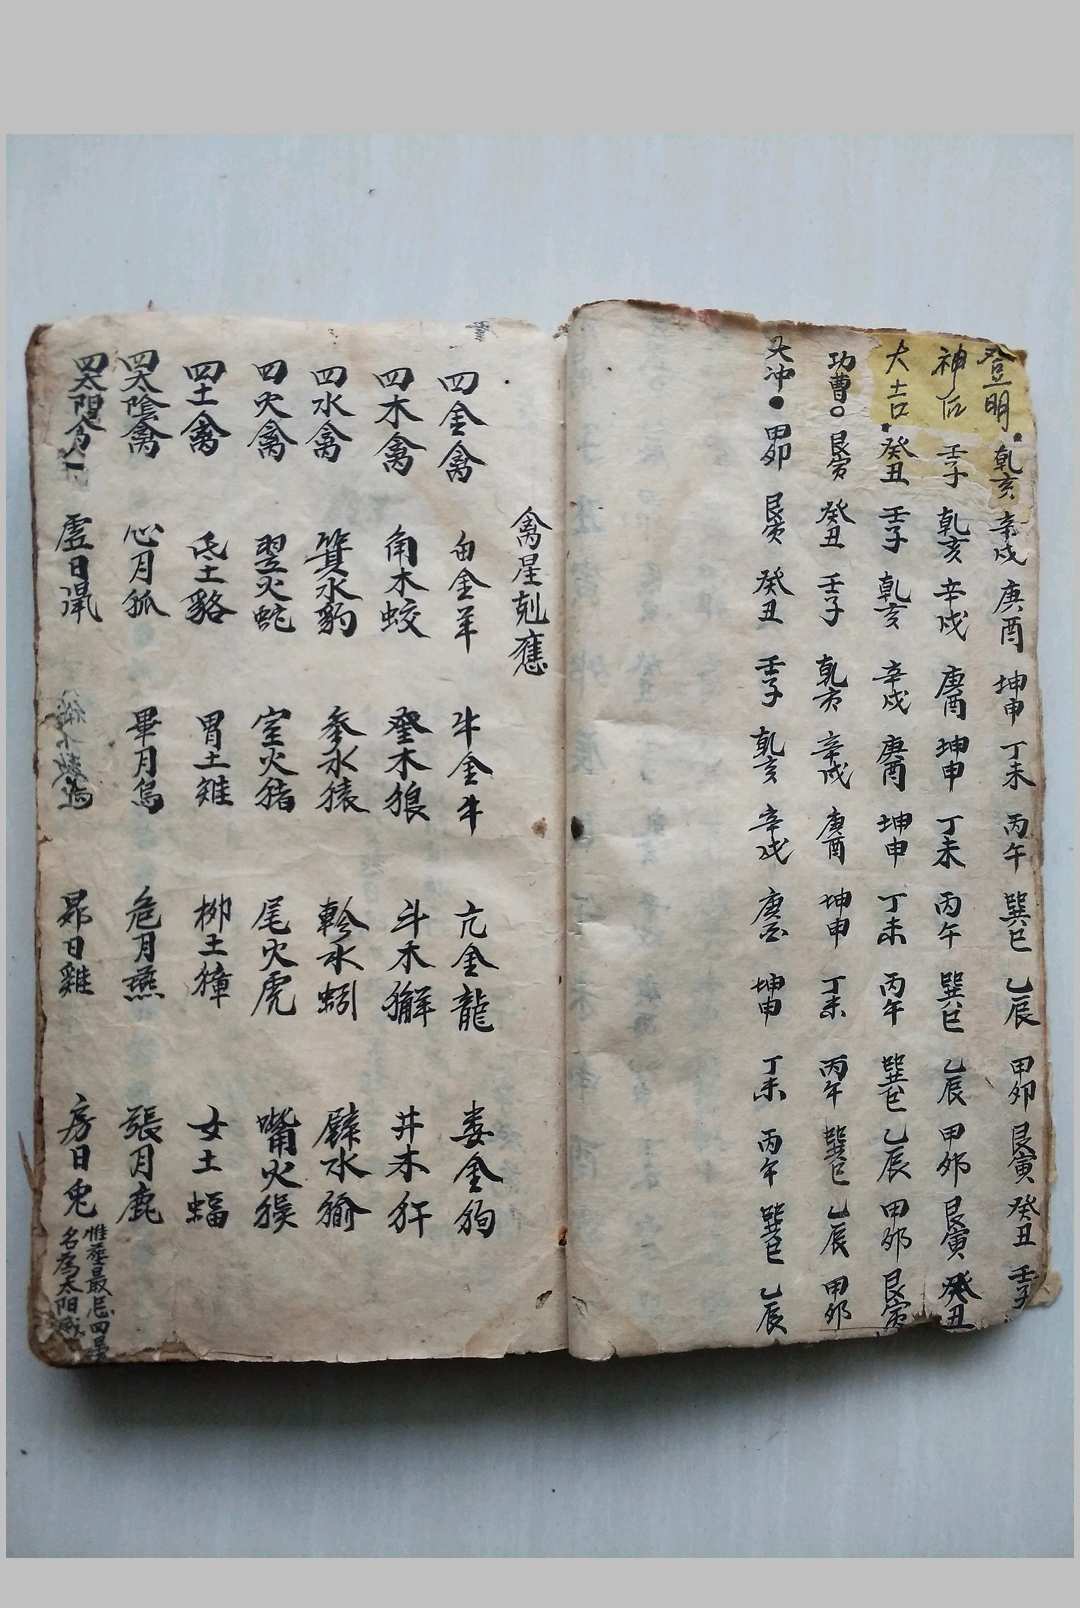 登明 乾亥 辛戌 庚酉 坤申 丁未 丙午 巽巳 乙辰 甲卯 艮寅 癸丑 壬子
神后 壬子 乾亥 辛戌 庚酉 坤申 丁未 丙午 巽巳 乙辰 甲卯 艮寅 癸丑
大吉 癸丑 壬子 乾亥 辛戌 庚酉 坤申 丁未 丙午 巽巳 乙辰 甲卯 艮寅
功曹 艮寅 癸丑 壬子 乾亥 辛戌 庚酉 坤申 丁未 丙午 巽巳 乙辰 甲卯
大冲 甲卯 艮寅 癸丑 壬子 乾亥 辛戌 庚酉 坤申 丁未 丙午 巽巳 乙辰
禽星剋應
四金禽 金羊 牛金牛 亢金龍 娄金狗
四木禽 角木蛟 奎木狼 斗木獬 井木犴
四水禽 箕水豹 参水猿 軫水蚓 壁水㺄
四火禽 翌火蛇 室火猪 尾火虎 嘴火猴
四土禽 氐土貉 胃土雉 柳土獐 女土蝠
四太陰禽 心月狐 畢月烏 危月燕 張月鹿
四太陽禽 虛日鼠 昴日雞 房日兎
惟葬最忌四星
名為太阳